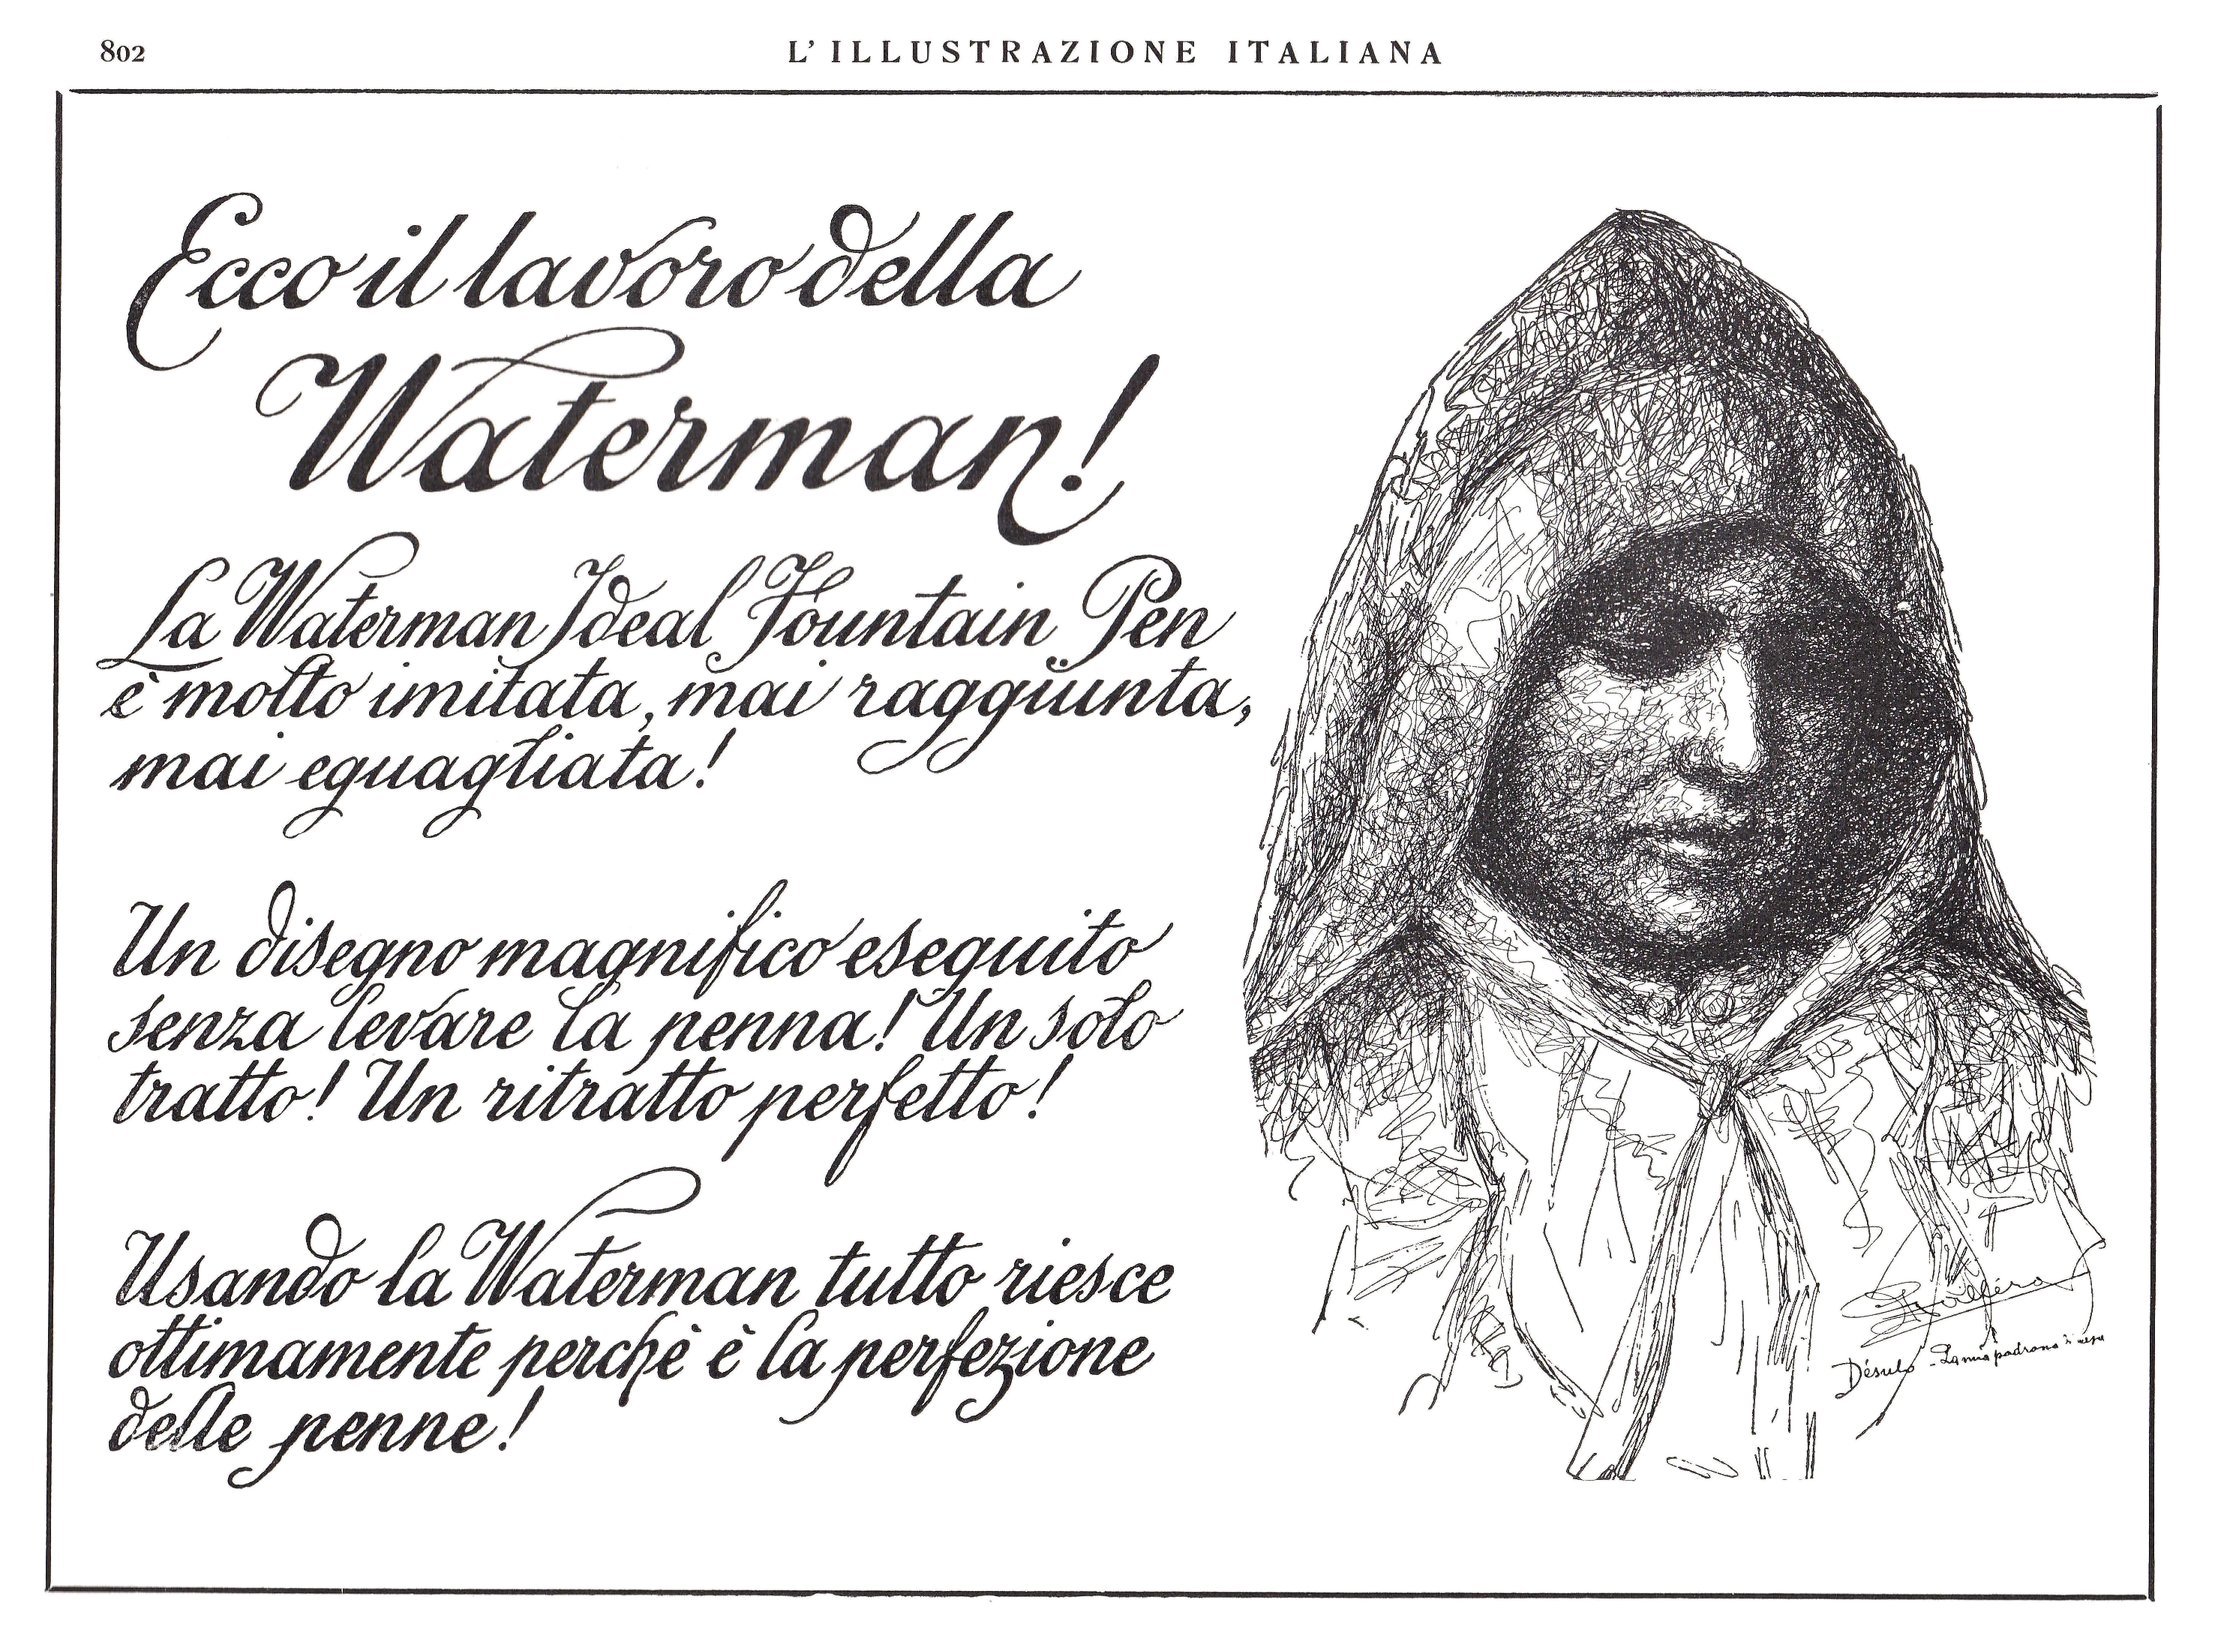 802
L'ILLUSTRAZIONE ITALIANA
Ecco il lavoro della
Waterman!
La Waterman Ideal Fountain Pen
è molto imitata, mai raggiunta,
mai eguagliata!
Un disegno magnifico eseguito
senza levare la penna! Un solo
tratto! Un ritratto perfetto!
Usando la Waterman tutto riesce
ottimamente perchè è la perfezione
delle penne!
Désulo - La mia padrona di